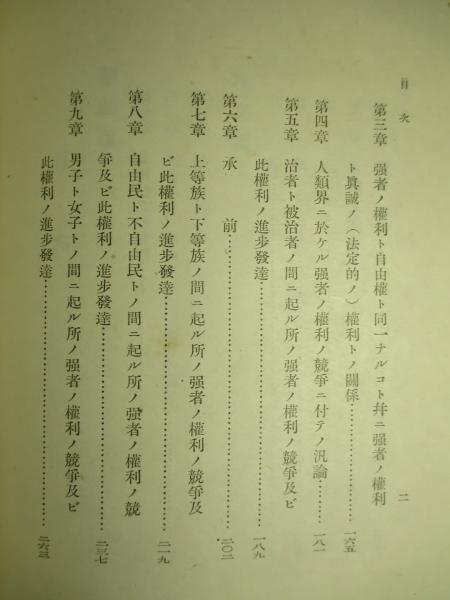 目次
二
第三章 强者ノ權利ト自由權ト同一ナルコト幷ニ强者ノ權利
ト眞誠ノ(法定的ノ)權利トノ關係……………………一六五
第四章 人類界ニ於ケル强者ノ權利ノ競爭ニ付テノ汎論…………一八一
第五章 治者ト被治者ノ間ニ起ル所ノ强者ノ權利ノ競爭及ビ
此權利ノ進步發達……………………一八九
第六章 承前……………………二〇二
第七章 上等族ト下等族ノ間ニ起ル所ノ强者ノ權利ノ競爭及
ビ此權利ノ進步發達……………………二一九
第八章 自由民ト不自由民トノ間ニ起ル所ノ强者ノ權利ノ競
爭及ビ此權利ノ進步發達……………………二三七
第九章 男子ト女子トノ間ニ起ル所ノ强者ノ權利ノ競爭及ビ
此權利ノ進步發達……………………二六三